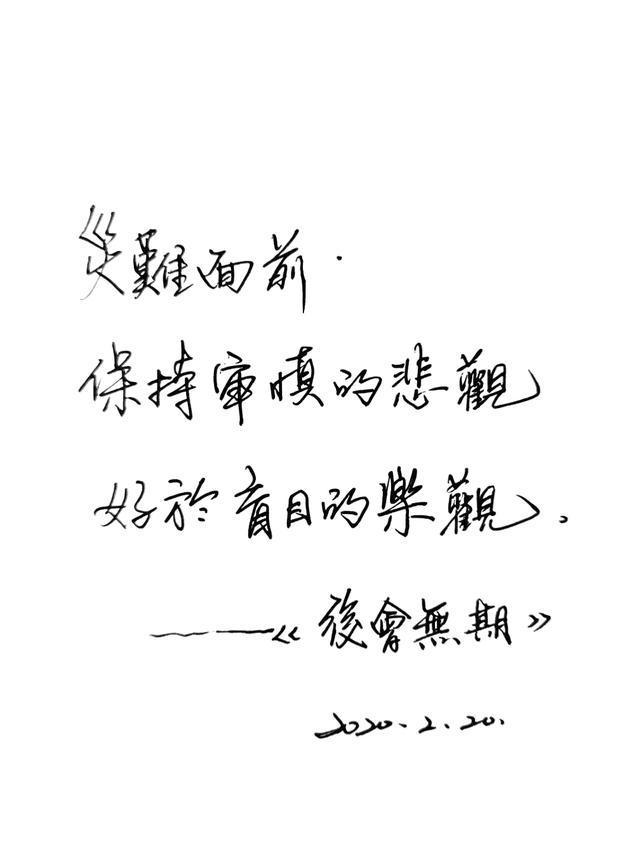 災難面前.
保持审慎的悲觀
好於盲目的樂觀.
——《後會無期》
2020.2.20.